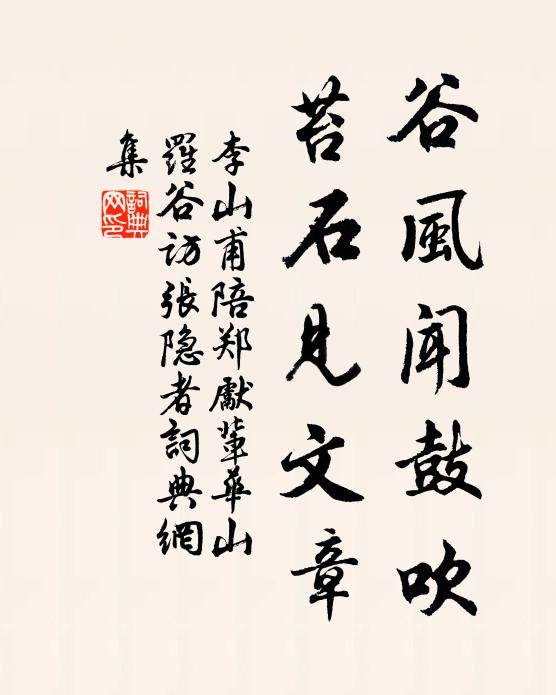 谷風聞鼓吹
苔石見文章
李山甫陪郑獻輩華山
羅谷访張隐者詞典網
集
詞典
网印